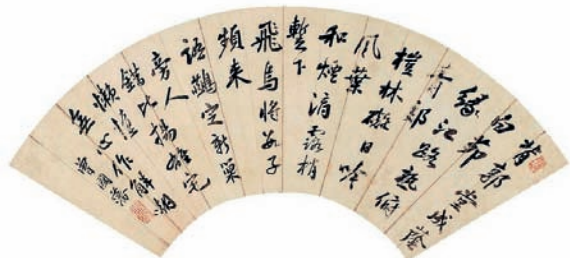 背郭堂成蔭
白茅
緣江路熟俯
青郊
榿林礙日吟
風葉
和煙滴露梢
暫下
飛烏將數子
頻來
語燕定新巢
旁人
錯比揚雄宅
懶惰
無心作解嘲
曾國藩